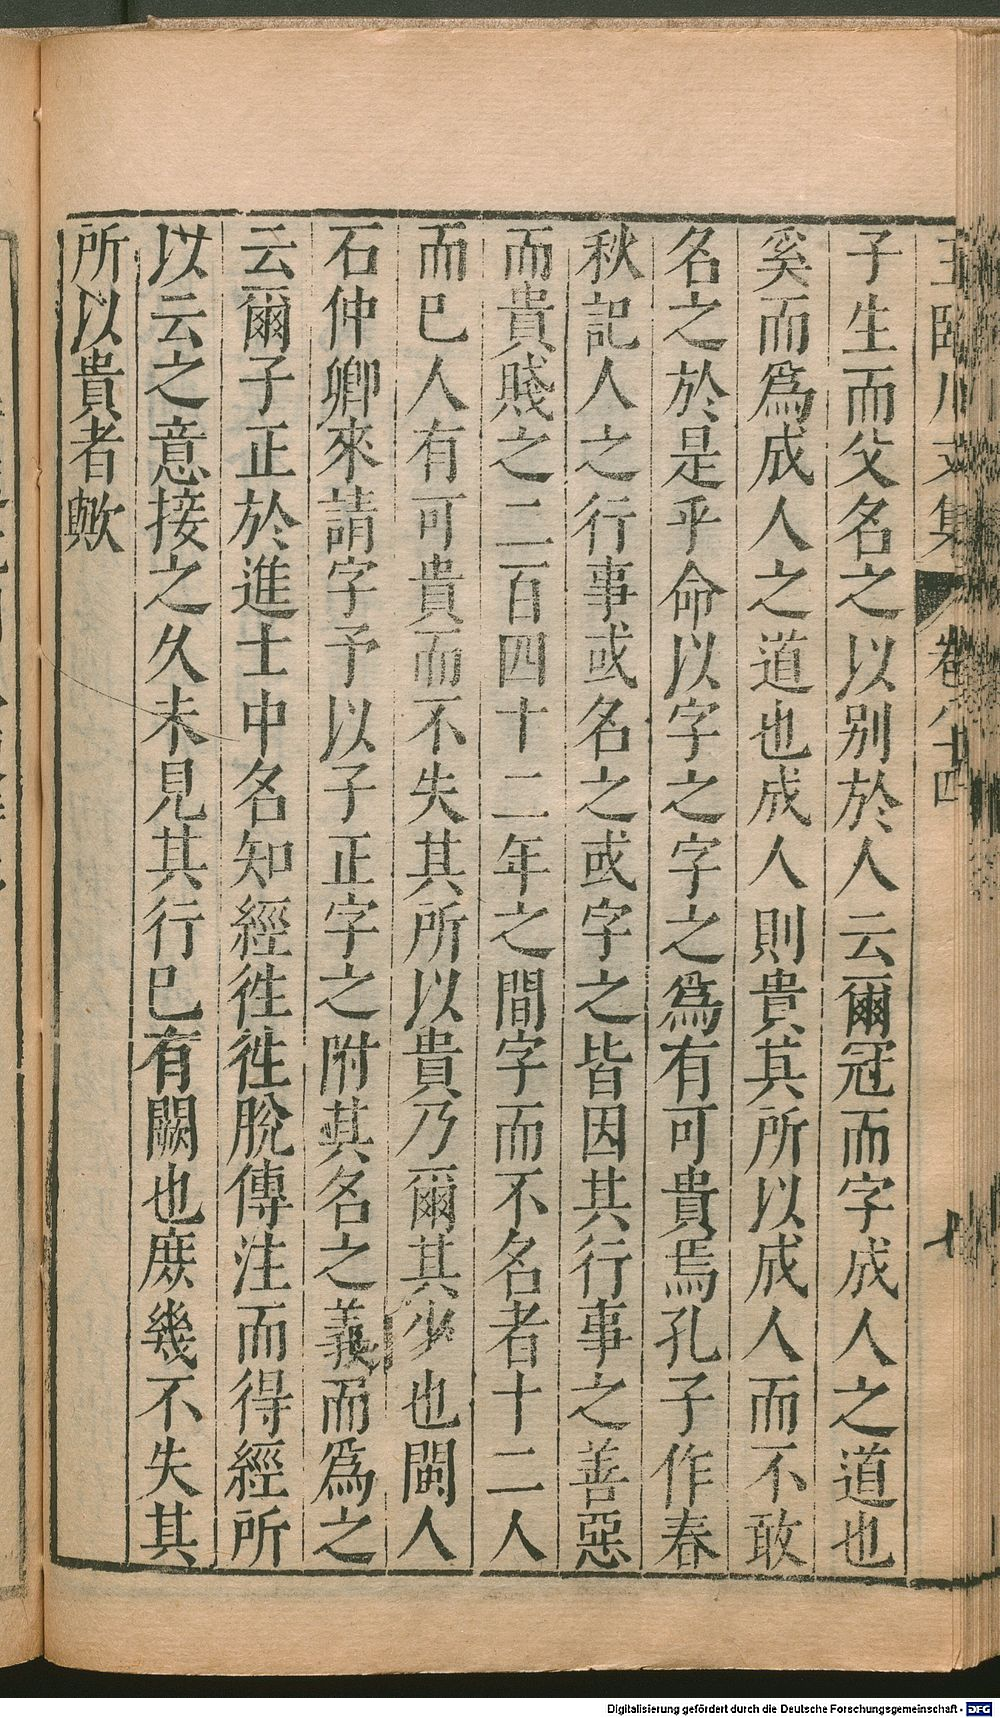 王臨川文集 卷八十四 十
子生而父名之以別於人云爾冠而字成人之道也
奚而爲成人之道也成人則貴其所以成人而不敢
名之於是乎命以字之字之爲有可貴焉孔子作春
秋記人之行事或名之或字之皆因其行事之善惡
而貴賤之二百四十二年之間字而不名者十二人
而已人有可貴而不失其所以貴乃爾其少也閩人
石仲卿來請字予以子正字之附其名之義而爲之
云爾子正於進士中名知經徃徃脫傳注而得經所
以云之意接之久未見其行已有闕也庶幾不失其
所以貴者歟
Digitalisierung gefördert durch die Deutsche Forschungsgemeinschaft - DFG